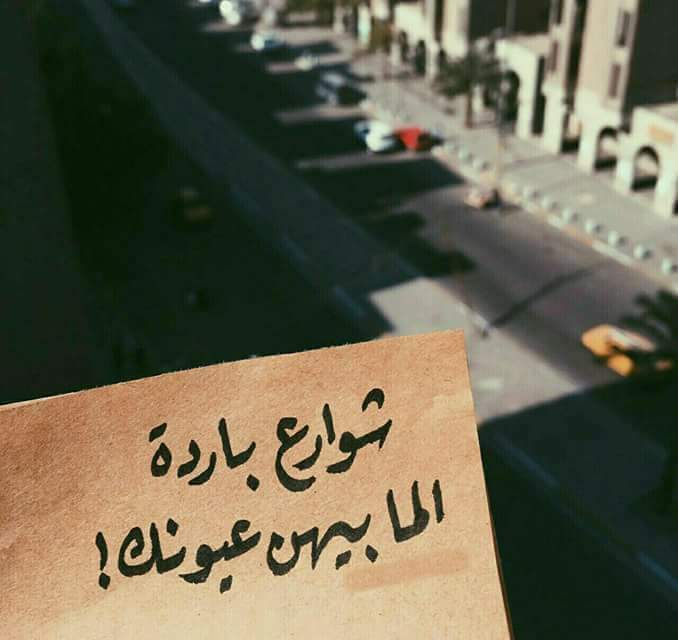 شوارع باردة
الما بيهن عيونك!